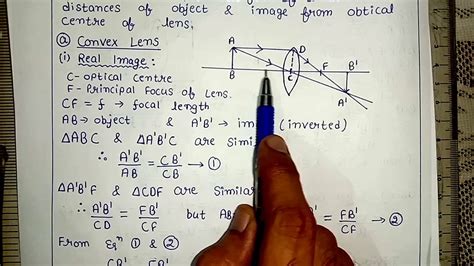 distances of object & image from optical
centre of lens.
(a) Convex Lens
(i) Real Image:
C- optical Centre
F- Principal Focus of Lens.
CF = f → focal length
AB → object & A'B' → (inverted)
ΔABC & ΔA'B'C are Simi
∴ A'B'/AB = CB'/CB → (1)
ΔA'B'F & ΔCDF are Similar
∴ A'B'/CD = FB'/CF but AB = FB'/CF → (2)
From Eqn (1) & (2)
CB' FB'
A
D
B
C
F
B'
A'